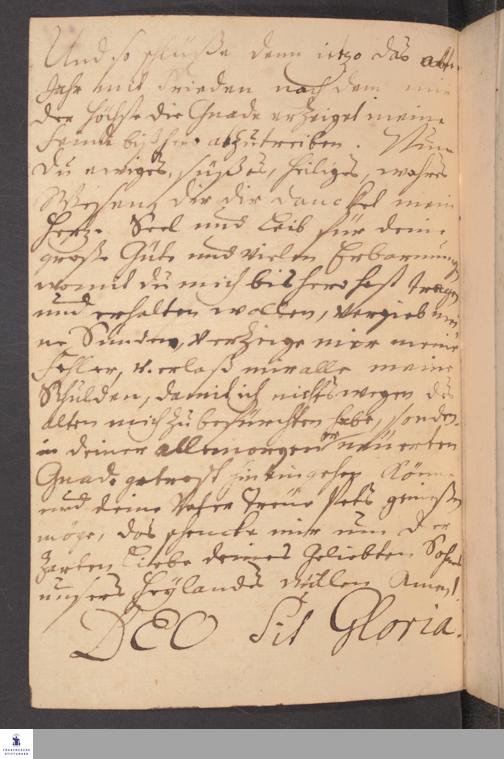 Und so schlüße denn ietzo das alte
Jahr mit Frieden nach dem mir
der Höchste die Gnade erzeiget meine
Feinde bißhero abzutreiben. Nun
du ewiges, süßes, heiliges, wahres
Wesen, dir dancket mein
Hertz Seel und Leib für deine
große Güte und vielen Erbarmungen
womit du mich bishero hast tragen
und erhalten wollen, vergieb mei
ne Sünden, verzeihe mir meine
Fehler, v. erlaß mir alle meine
Schulden, damit ich nichts wegen des
alten mich zu befürchten habe, sondern
in deiner allemorgen neuerten
Gnade getrost hineingehen könne
und deine Vater Treüe stets genießen
möge, das schencke mir um der
zarten Liebe deines Geliebten Sohnes
unsers Heylandes willen Amen!
DEO Sit Gloria.
FRANCKESCHE STIFTUNGEN